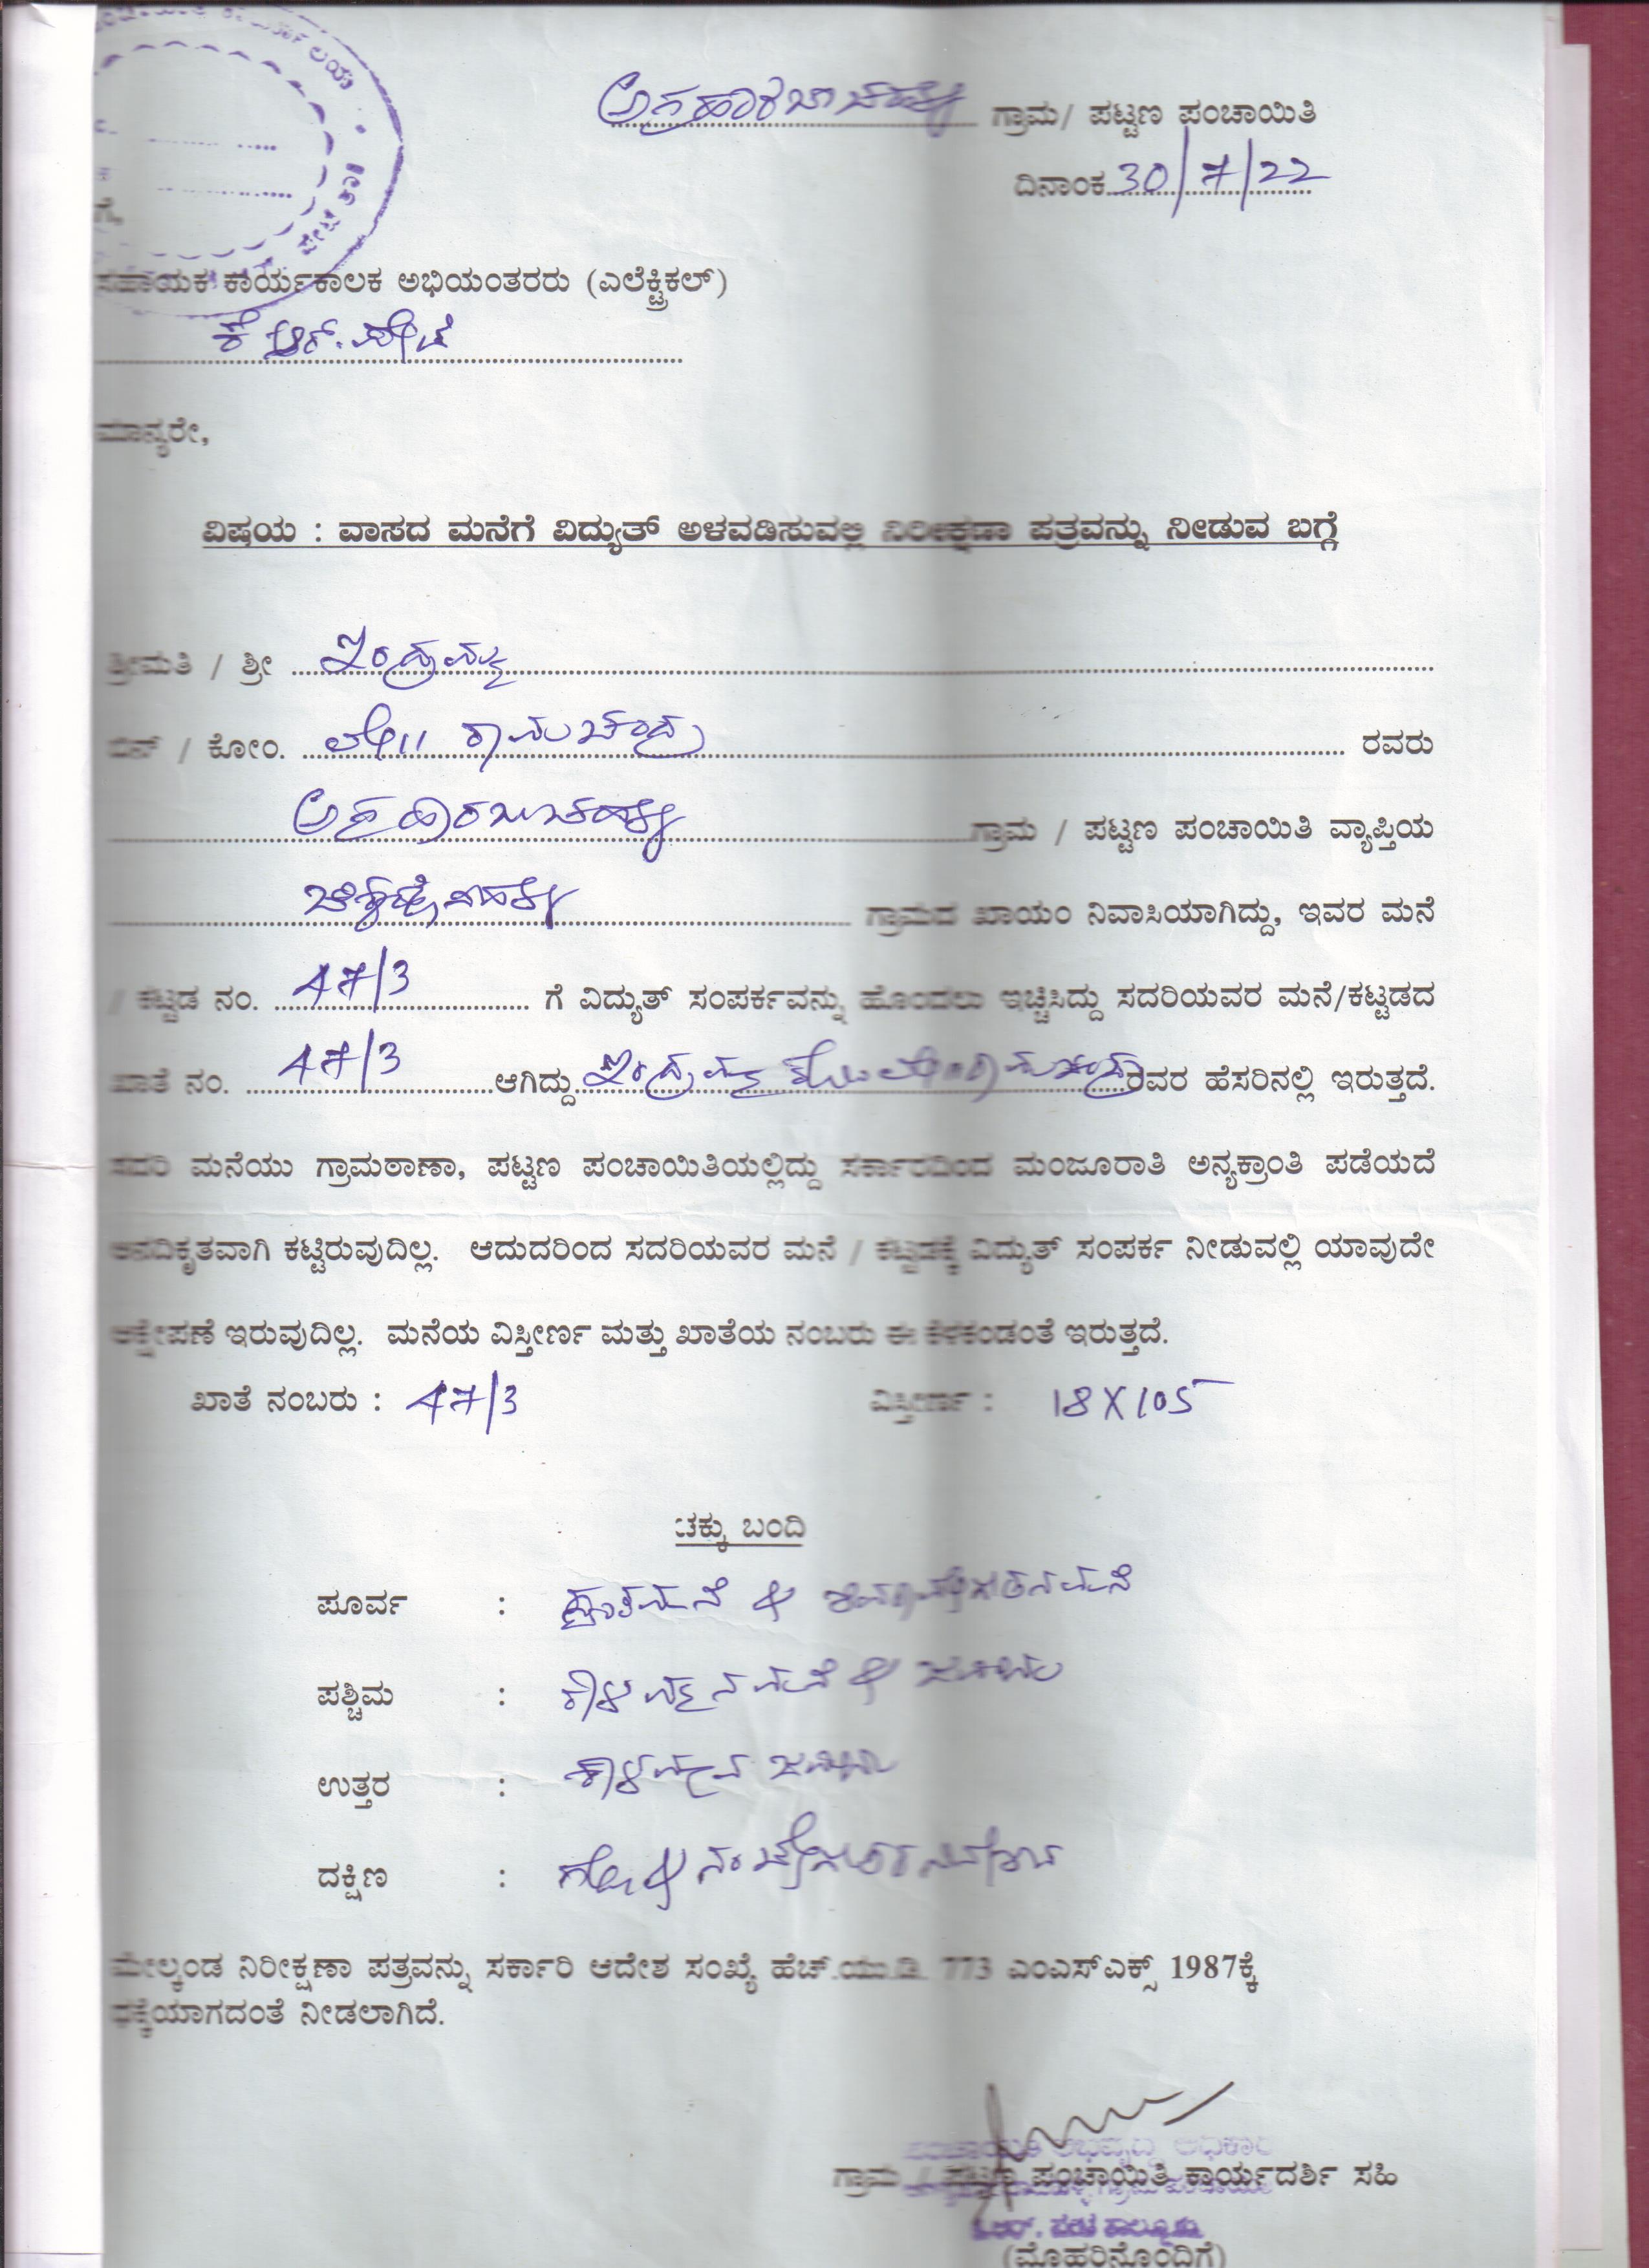 ಅಗ್ರಹಾರಬಾಚಹಳ್ಳಿ ಗ್ರಾಮ/ ಪಟ್ಟಣ ಪಂಚಾಯಿತಿ
ದಿನಾಂಕ 30/7/22
ಗೆ,
ಸಹಾಯಕ ಕಾರ್ಯಕಾಲಕ ಅಭಿಯಂತರರು (ಎಲೆಕ್ಟ್ರಿಕಲ್)
ಕೆ ಆರ್. ಪೇಟೆ
ಮಾನ್ಯರೇ,
ವಿಷಯ : ವಾಸದ ಮನೆಗೆ ವಿದ್ಯುತ್ ಅಳವಡಿಸುವಲ್ಲಿ ನಿರೀಕ್ಷಣಾ ಪತ್ರವನ್ನು ನೀಡುವ ಬಗ್ಗೆ
ಶ್ರೀಮತಿ / ಶ್ರೀ ಇಂದ್ರಮ್ಮ
ಬಿನ್ / ಕೋಂ. ಲೇ|| ರಾಮಚಂದ್ರ ರವರು
ಅಗ್ರಹಾರಬಾಚಹಳ್ಳಿ ಗ್ರಾಮ / ಪಟ್ಟಣ ಪಂಚಾಯಿತಿ ವ್ಯಾಪ್ತಿಯ
ಗ್ರಾಮದ ಖಾಯಂ ನಿವಾಸಿಯಾಗಿದ್ದು, ಇವರ ಮನೆ
/ ಕಟ್ಟಡ ನಂ. 47/3 ಗೆ ವಿದ್ಯುತ್ ಸಂಪರ್ಕವನ್ನು ಹೊಂದಲು ಇಚ್ಚಿಸಿದ್ದು ಸದರಿಯವರ ಮನೆ/ಕಟ್ಟಡದ
ಖಾತೆ ನಂ. 47/3 ಆಗಿದ್ದು ಇಂದ್ರಮ್ಮ ಕೋಂ ಲೇ|| ರಾಮಚಂದ್ರ ರವರ ಹೆಸರಿನಲ್ಲಿ ಇರುತ್ತದೆ.
ಸದರಿ ಮನೆಯು ಗ್ರಾಮಠಾಣಾ, ಪಟ್ಟಣ ಪಂಚಾಯಿತಿಯಲ್ಲಿದ್ದು ಸರ್ಕಾರದಿಂದ ಮಂಜೂರಾತಿ ಅನ್ಯಕ್ರಾಂತಿ ಪಡೆಯದೆ
ಅನದಿಕೃತವಾಗಿ ಕಟ್ಟಿರುವುದಿಲ್ಲ. ಆದುದರಿಂದ ಸದರಿಯವರ ಮನೆ / ಕಟ್ಟಡಕ್ಕೆ ವಿದ್ಯುತ್ ಸಂಪರ್ಕ ನೀಡುವಲ್ಲಿ ಯಾವುದೇ
ಆಕ್ಷೇಪಣೆ ಇರುವುದಿಲ್ಲ. ಮನೆಯ ವಿಸ್ತೀರ್ಣ ಮತ್ತು ಖಾತೆಯ ನಂಬರು ಈ ಕೆಳಕಂಡಂತೆ ಇರುತ್ತದೆ.
ಖಾತೆ ನಂಬರು : 47/3 ವಿಸ್ತೀರ್ಣ : 18 X 105
ಚಕ್ಕು ಬಂದಿ
ಪೂರ್ವ :
ಪಶ್ಚಿಮ :
ಉತ್ತರ :
ದಕ್ಷಿಣ :
ಮೇಲ್ಕಂಡ ನಿರೀಕ್ಷಣಾ ಪತ್ರವನ್ನು ಸರ್ಕಾರಿ ಆದೇಶ ಸಂಖ್ಯೆ ಹೆಚ್.ಯು.ಡಿ. 773 ಎಂಎಸ್ಎಕ್ಸ್ 1987ಕ್ಕೆ
ಧಕ್ಕೆಯಾಗದಂತೆ ನೀಡಲಾಗಿದೆ.
ಗ್ರಾಮ / ಪಟ್ಟಣ ಪಂಚಾಯಿತಿ ಕಾರ್ಯದರ್ಶಿ ಸಹಿ
(ಮೊಹರಿನೊಂದಿಗೆ)